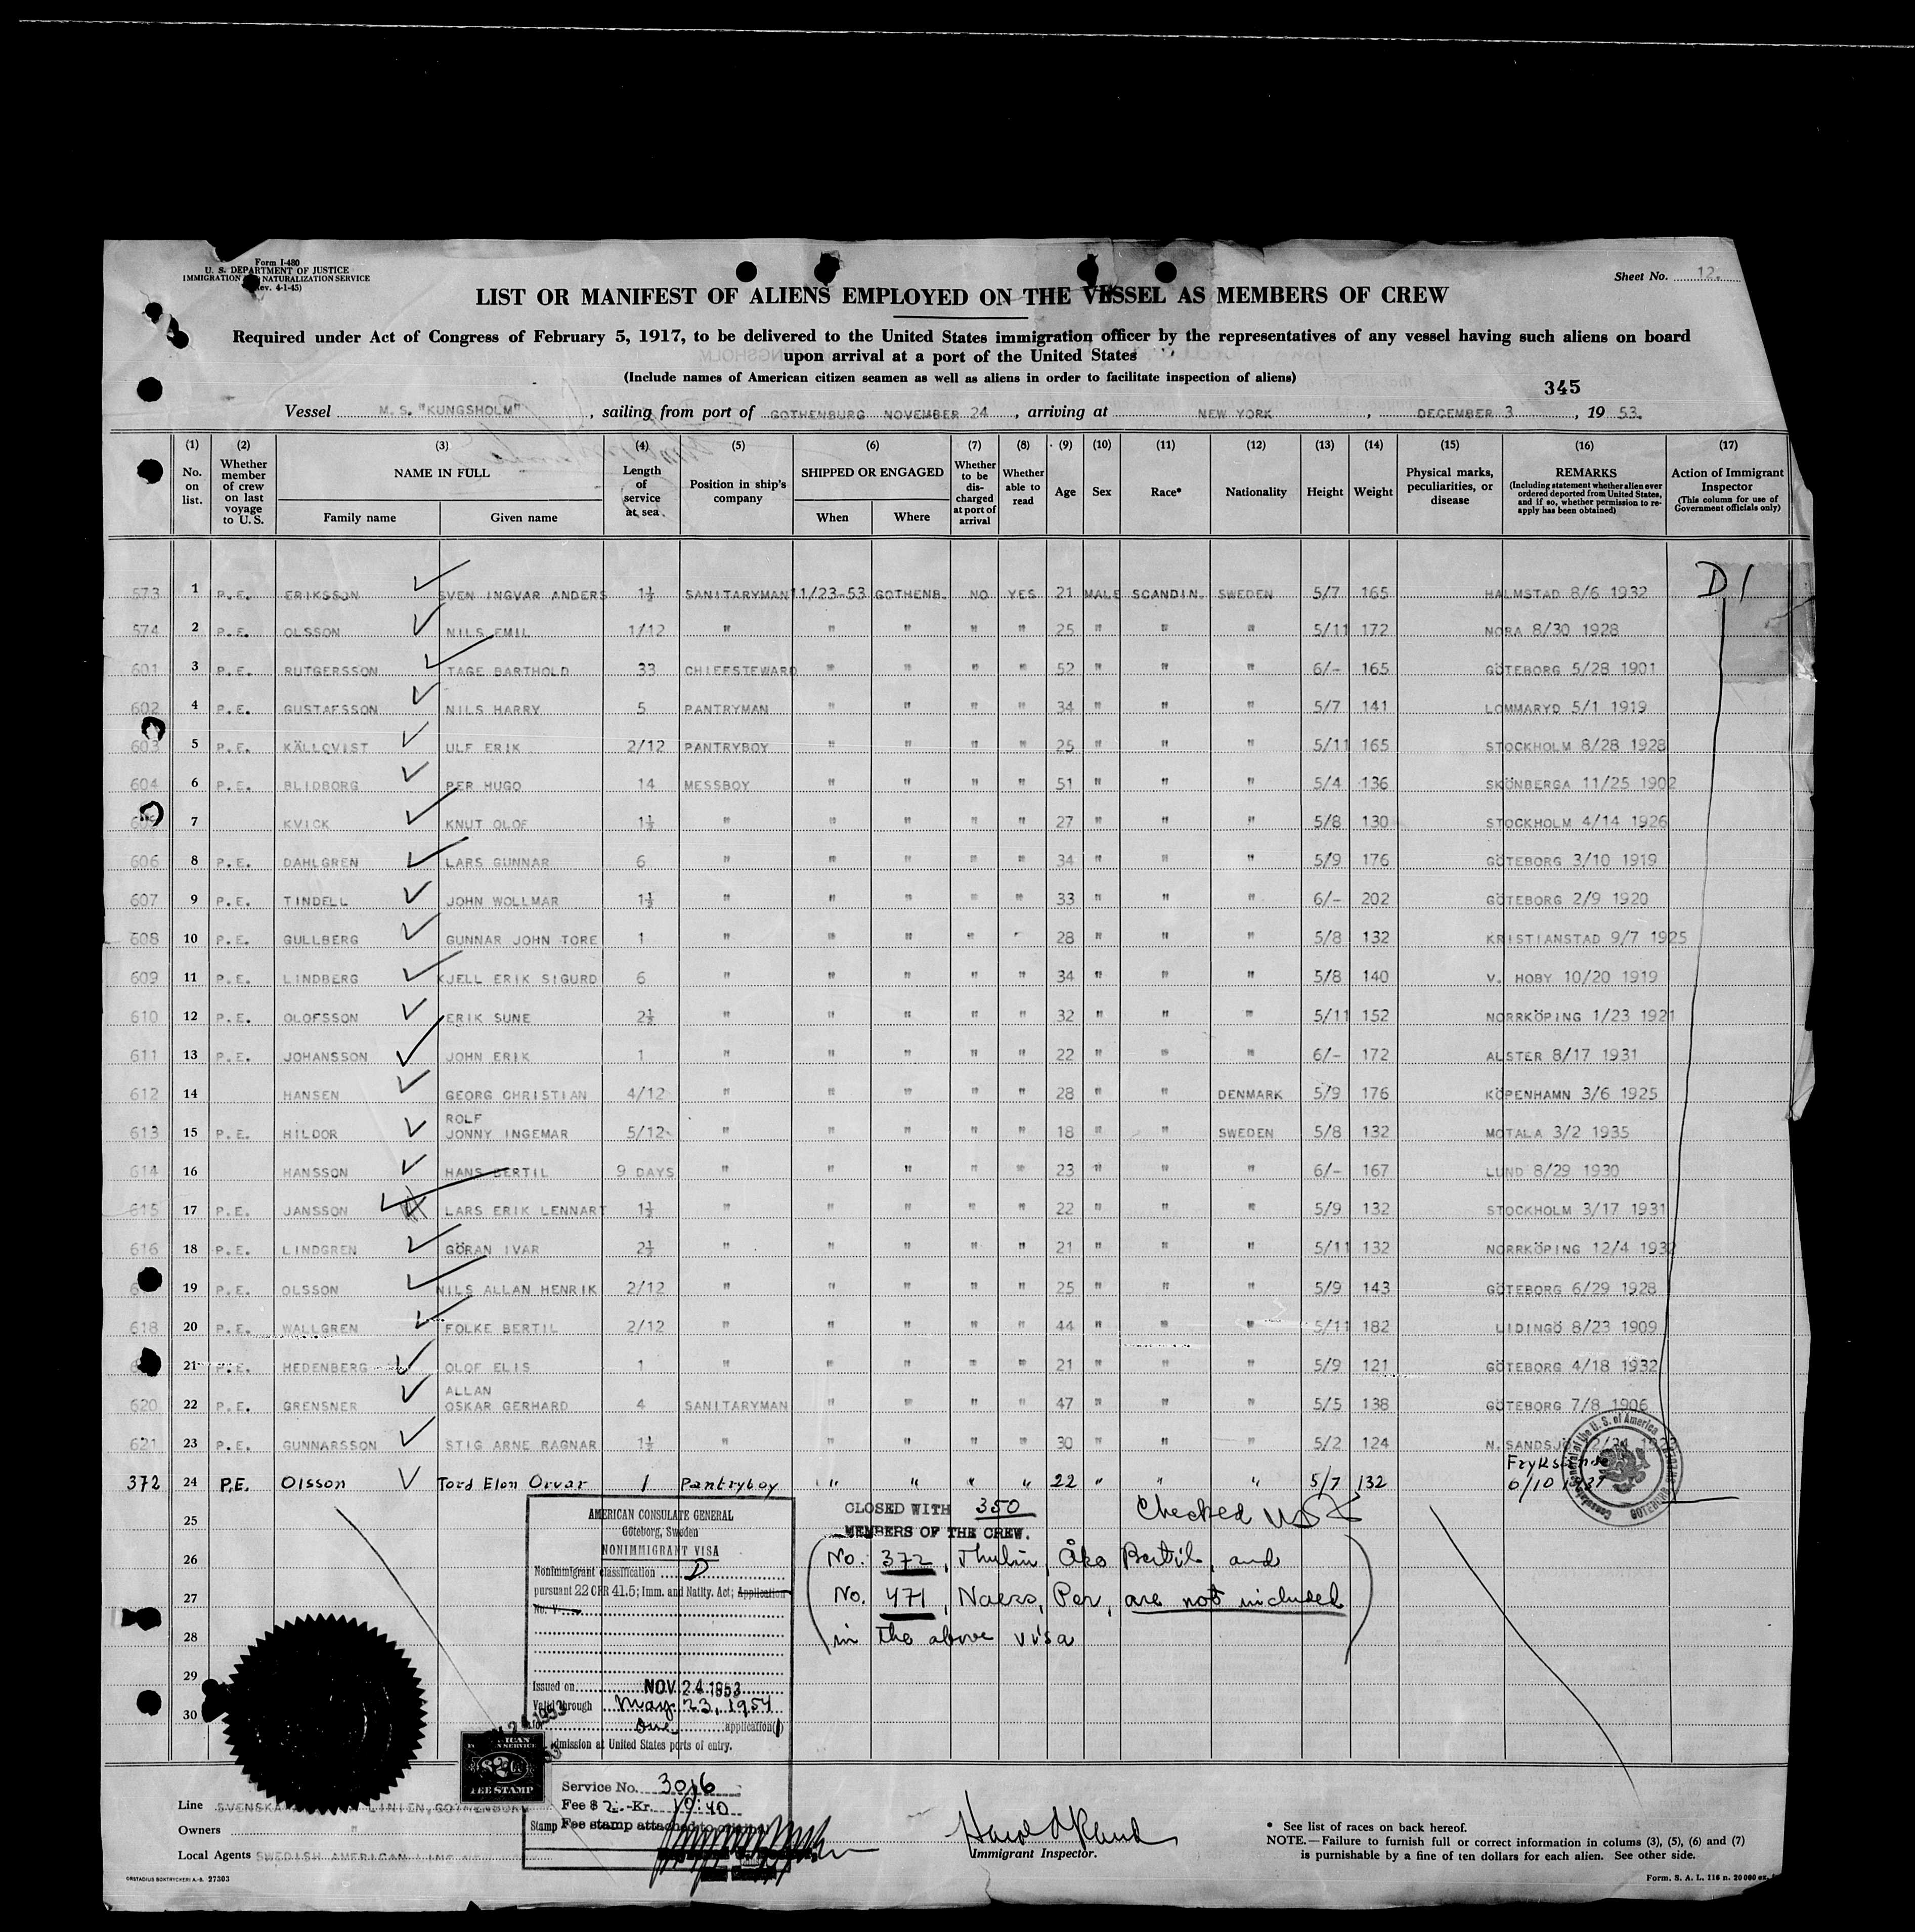 Form I-480
U. S. DEPARTMENT OF JUSTICE
IMMIGRATION AND NATURALIZATION SERVICE
(Rev. 4-1-45)
Sheet No. 12.
LIST OR MANIFEST OF ALIENS EMPLOYED ON THE VESSEL AS MEMBERS OF CREW
Required under Act of Congress of February 5, 1917, to be delivered to the United States immigration officer by the representatives of any vessel having such aliens on board
upon arrival at a port of the United States
(Include names of American citizen seamen as well as aliens in order to facilitate inspection of aliens)
345
Vessel M.S. "KUNGSHOLM", sailing from port of GOTHENBURG NOVEMBER 24, arriving at NEW YORK, DECEMBER 3, 19 53.
(1) No. on list.
(2) Whether member of crew on last voyage to U. S.
(3) NAME IN FULL Family name Given name
(4) Length of service at sea
(5) Position in ship's company
(6) SHIPPED OR ENGAGED When Where
(7) Whether to be discharged at port of arrival
(8) Whether able to read
(9) Age
(10) Sex
(11) Race*
(12) Nationality
(13) Height
(14) Weight
(15) Physical marks, peculiarities, or disease
(16) REMARKS (Including statement whether alien ever ordered deported from United States, and if so, whether permission to reapply has been obtained)
(17) Action of Immigrant Inspector (This column for use of Government officials only)
573 1 P.E. ERIKSSON SVEN INGVAR ANDERS 1½ SANITARYMAN 11/23-53 GOTHENB. NO YES 21 MALE SCANDIN. SWEDEN 5/7 165 HALMSTAD 8/6 1932 D1
574 2 P.E. OLSSON NILS EMIL 1/12 " " " " " 25 " " " 5/11 172 NORA 8/30 1928
601 3 P.E. RUTGERSSON TAGE BARTHOLD 33 CHIEFSTEWARD " " " " 52 " " " 6/- 165 GÖTEBORG 5/28 1901
602 4 P.E. GUSTAFSSON NILS HARRY 5 PANTRYMAN " " " " 34 " " " 5/7 141 LOMMARYD 5/1 1919
603 5 P.E. KÄLLQVIST ULF ERIK 2/12 PANTRYBOY " " " " 25 " " " 5/11 165 STOCKHOLM 8/28 1928
604 6 P.E. BLIDBORG PER HUGO 14 MESSBOY " " " " 51 " " " 5/4 136 SKÖNBERGA 11/25 1902
7 KVICK KNUT OLOF 1½ " " " " " 27 " " " 5/8 130 STOCKHOLM 4/14 1926
606 8 P.E. DAHLGREN LARS GUNNAR 6 " " " " " 34 " " " 5/9 176 GÖTEBORG 3/10 1919
607 9 P.E. TINDELL JOHN WOLLMAR 1½ " " " " " 33 " " " 6/- 202 GÖTEBORG 2/9 1920
608 10 P.E. GULLBERG GUNNAR JOHN TORE 1 " " " " " 28 " " " 5/8 132 KRISTIANSTAD 9/7 1925
609 11 P.E. LINDBERG KJELL ERIK SIGURD 6 " " " " " 34 " " " 5/8 140 V. HOBY 10/20 1919
610 12 P.E. OLOFSSON ERIK SUNE 2½ " " " " " 32 " " " 5/11 152 NORRKÖPING 1/23 1921
611 13 P.E. JOHANSSON JOHN ERIK 1 " " " " " 22 " " " 6/- 172 ALSTER 8/17 1931
612 14 HANSEN GEORG CHRISTIAN 4/12 " " " " " 28 " " DENMARK 5/9 176 KÖPENHAMN 3/6 1925
ROLF
613 15 P.E. HILDOR JONNY INGEMAR 5/12 " " " " " 18 " " SWEDEN 5/8 132 MOTALA 3/2 1935
614 16 HANSSON HANS BERTIL 9 DAYS " " " " " 23 " " " 6/- 167 LUND 8/29 1930
615 17 P.E. JANSSON LARS ERIK LENNART 1½ " " " " " 22 " " " 5/9 132 STOCKHOLM 3/17 1931
616 18 P.E. LINDGREN GÖRAN IVAR 2½ " " " " " 21 " " " 5/11 132 NORRKÖPING 12/4 1932
19 P.E. OLSSON NILS ALLAN HENRIK 2/12 " " " " " 25 " " " 5/9 143 GÖTEBORG 6/29 1928
618 20 P.E. WALLGREN FOLKE BERTIL 2/12 " " " " " 44 " " " 5/11 182 LIDINGÖ 8/23 1909
21 P.E. HEDENBERG OLOF ELIS 1 " " " " " 21 " " " 5/9 121 GÖTEBORG 4/18 1932
ALLAN
620 22 P.E. GRENSNER OSKAR GERHARD 4 SANITARYMAN " " " " 47 " " " 5/5 138 GÖTEBORG 7/8 1906
621 23 P.E. GUNNARSSON STIG ARNE RAGNAR 1½ " " " " " 30 " " " 5/2 124 N. SANDSJÖ
372 24 P.E. Olsson Tord Elon Orvar 1 Pantryboy " " " " 22 " " " 5/7 132 6/10
25
26
27
28
29
30
CLOSED WITH 350
MEMBERS OF THE CREW.
Checked
(No. 372, Thulin, Åke Bertil, and
No. 471, Naess, Per, are not included
in the above visa)
AMERICAN CONSULATE GENERAL
Göteborg, Sweden
NONIMMIGRANT VISA
Nonimmigrant classification D
pursuant 22 CFR 41.5; Imm. and Natity. Act; Application
No. V
Issued on NOV 24 1953
Valid through May 23, 1954
for One application( )
admission at United States ports of entry.
Service No. 3016
Fee $ 2.- Kr. 10:40
Stamp Fee stamp attached to
FEE STAMP
Line SVENSKA LINIEN, GOTHENBURG
Owners "
Local Agents SWEDISH AMERICAN LINE
Immigrant Inspector.
* See list of races on back hereof.
NOTE.—Failure to furnish full or correct information in colums (3), (5), (6) and (7)
is punishable by a fine of ten dollars for each alien. See other side.
ORSTADIUS BOKTRYCKERI A.-B. 27303
Form. S. A. L. 116 n. 20 000 ex.